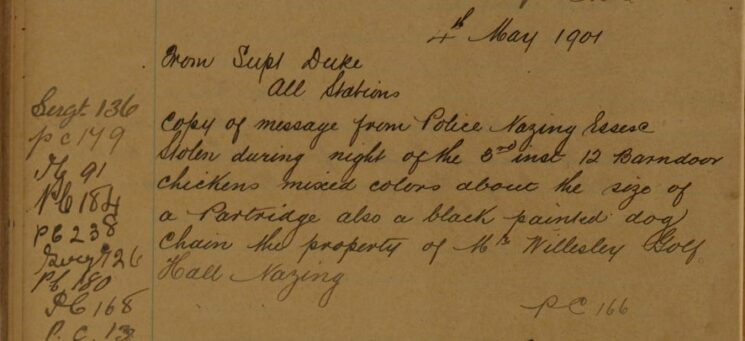 4th May 1901
From Supt Duke
All Stations
Copy of message from Police Nazing Essex
Stolen during night of the 3rd inst 12 Barndoor
chickens mixed colors about the size of
a Partridge also a black painted dog
chain the property of Mr Willesley Golf
Hall Nazing
PC 166
Sergt 136
PC 179
91
PC 184
PC 238
Sergt 126
PC 180
PC 168
P.C. 13